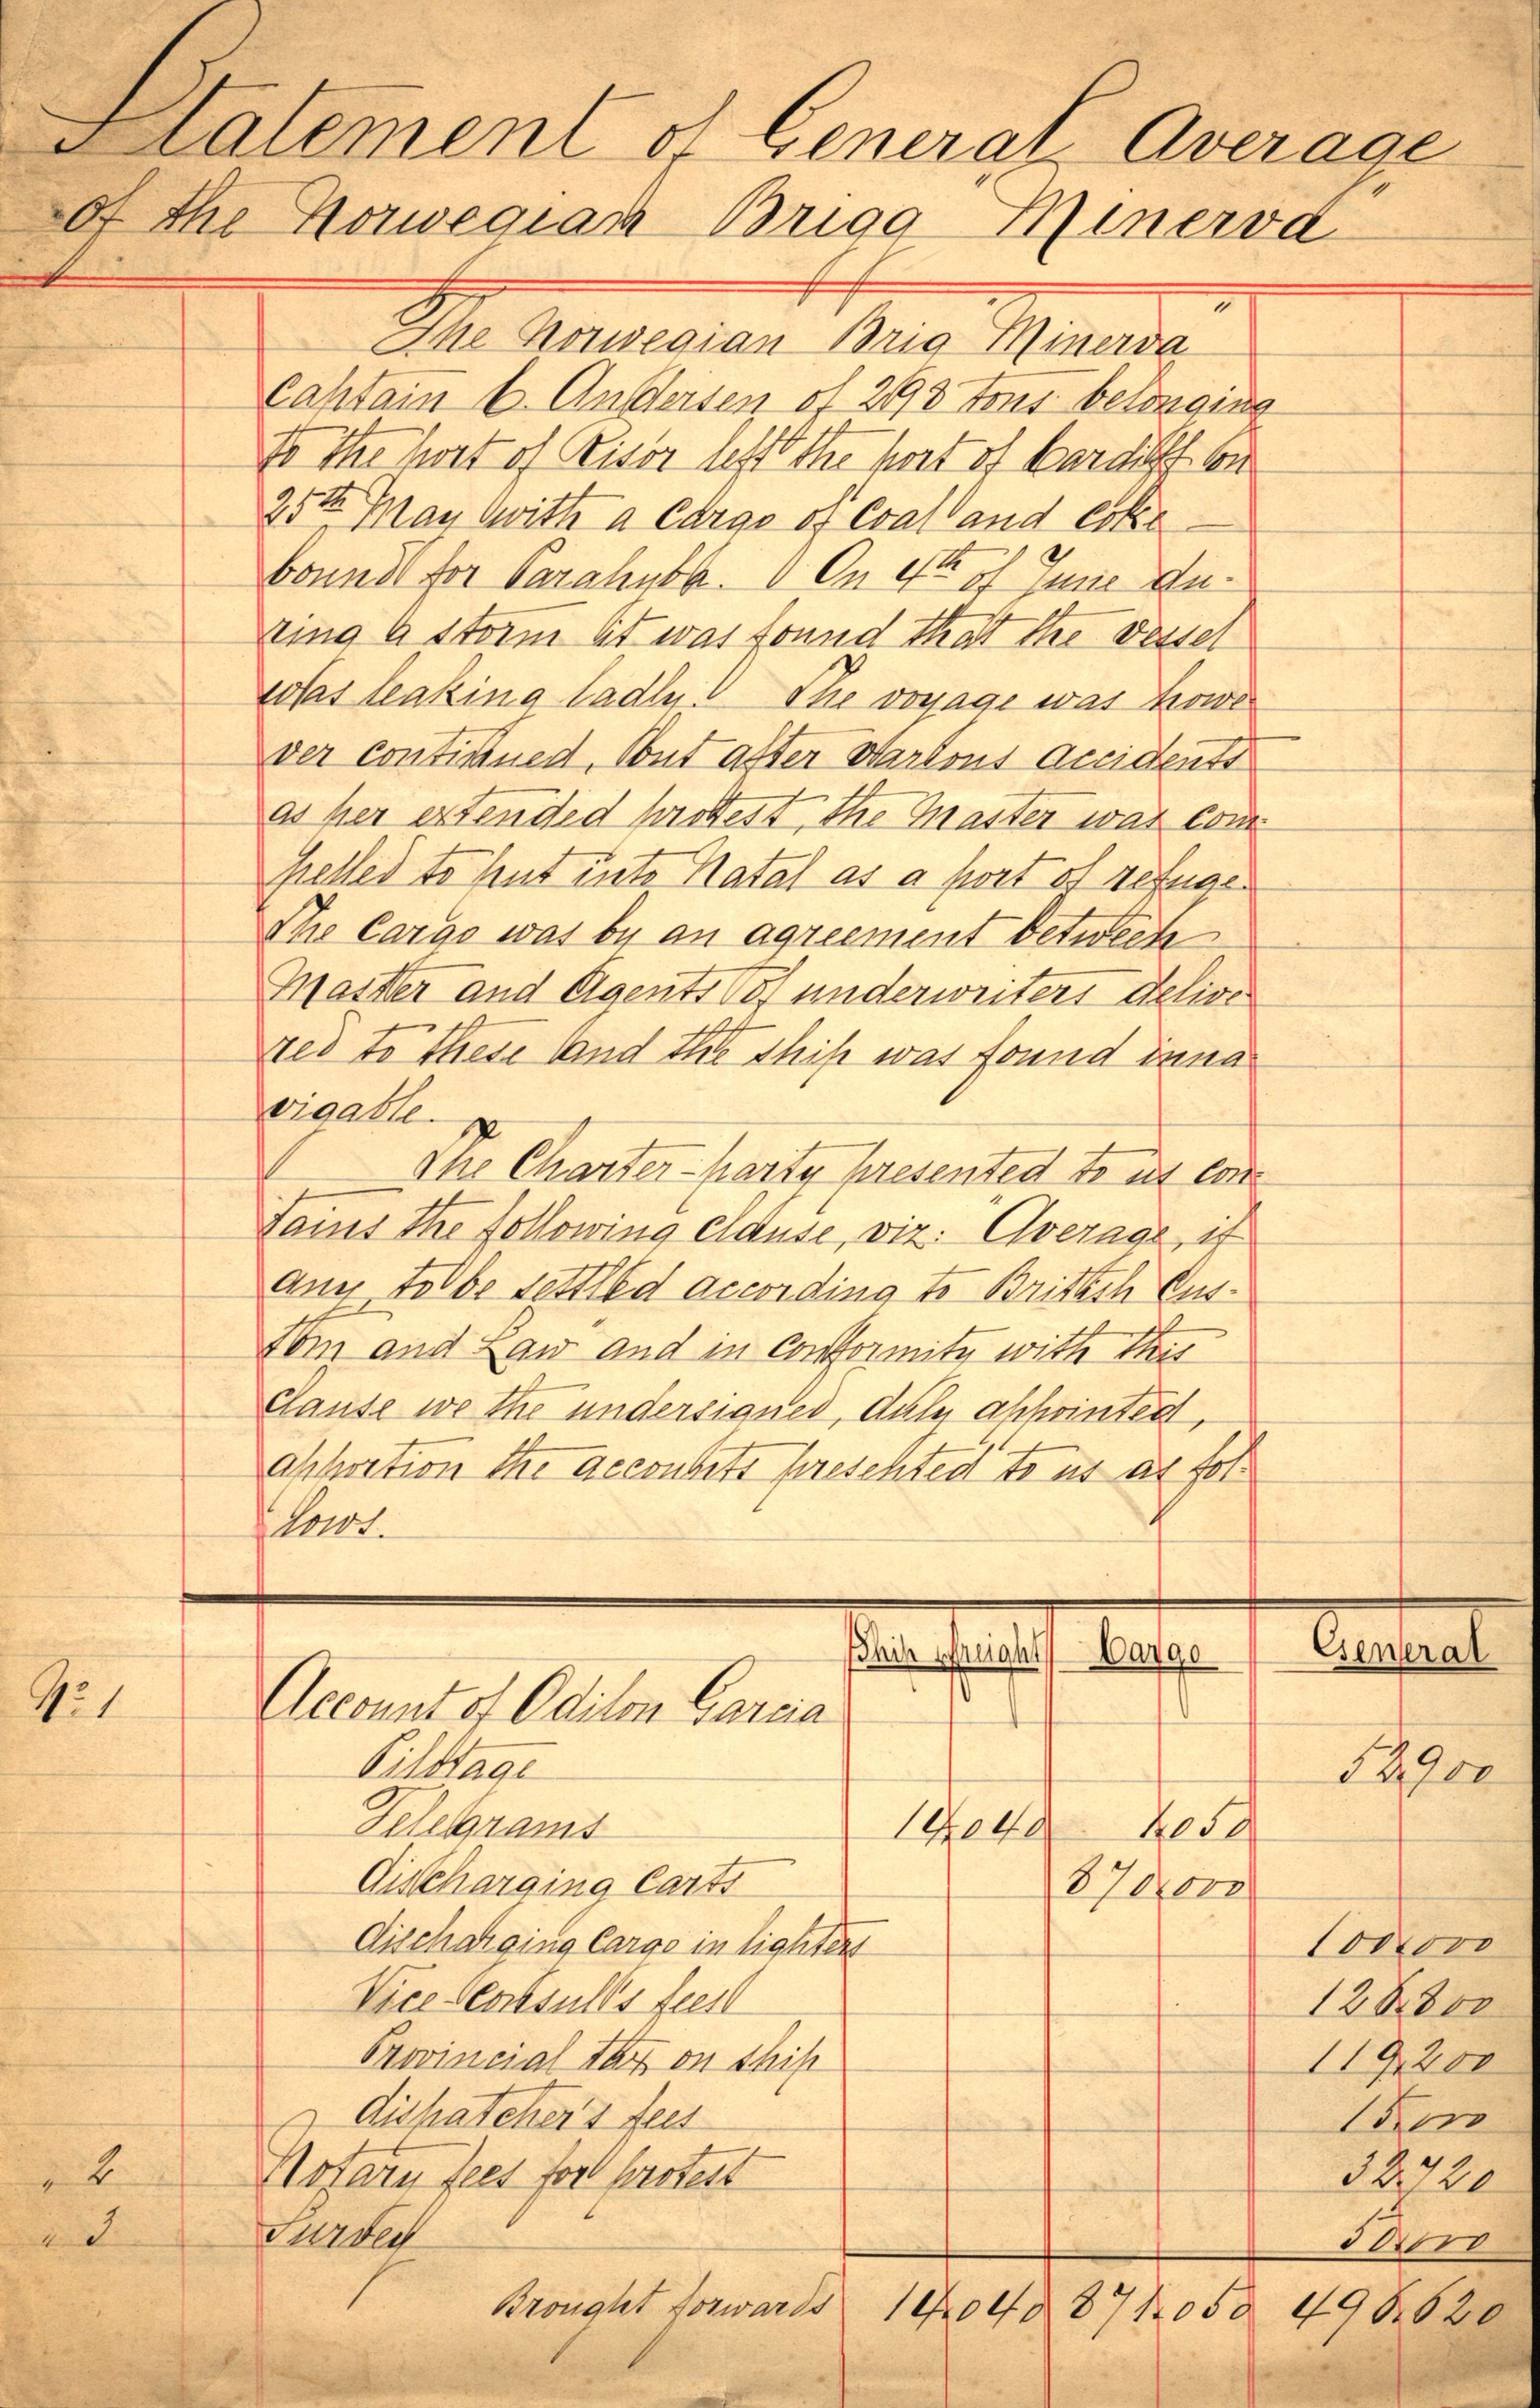 Statement of General Average
of the Norwegian Brigg "Minerva"
The Norwegian Brig "Minerva"
Captain C. Andersen of 293 tons belonging
to the port of Risör left the port of Cardiff on
25th May with a cargo of Coal and coke
bound for Parahyba. On 4th of June du-
ring a storm it was found that the vessel
was leaking badly. The voyage was howe-
ver continued, but after various accidents
as per extended protest, the Master was com-
pelled to put into Natal as a port of refuge.
The Cargo was by an agreement between
Master and Agents of underwriters delive-
red to these and the ship was found inna-
vigable.
The Charter-party presented to us con-
tains the following clause, viz: "Average, if
any, to be settled according to British Cus-
tom and Law" and in conformity with this
clause we the undersigned, duly appointed,
apportion the accounts presented to us as fol-
lows.
Ship freight Cargo General
No 1 Account of Odilon Garcia
Pilotage 52,900
Telegrams 14,040 4,050
Discharging Carts 870,000
discharging Cargo in lighters 100,000
Vice-Consul's fees 126,800
Provincial tax on ship 119,200
dispatcher's fees 15,000
" 2 Notary fees for protest 32,720
" 3 Survey 50,000
Brought forwards 14,040 874,050 496,620